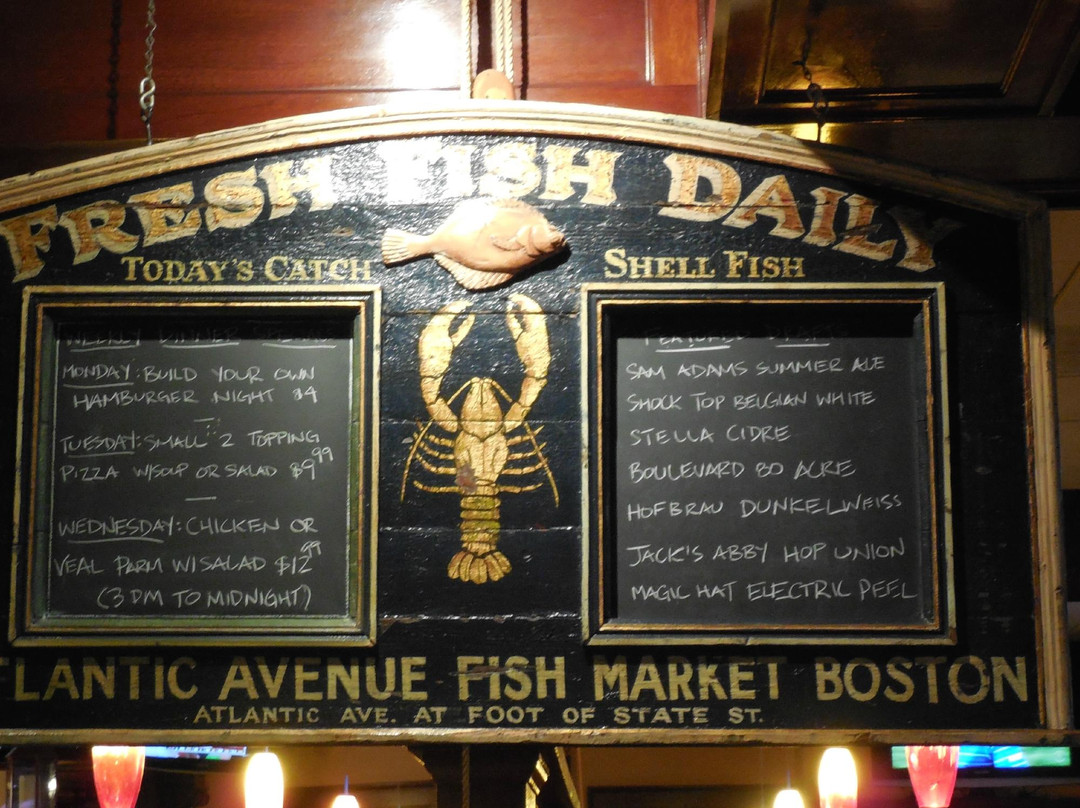 FRESH FISH DAILY
TODAY'S CATCH
SHELL FISH
WEEKLY DINNER
MONDAY: BUILD YOUR OWN
HAMBURGER NIGHT $4
TUESDAY: SMALL 2 TOPPING
PIZZA W/SOUP OR SALAD $9.99
WEDNESDAY: CHICKEN OR
VEAL PARM W/SALAD $12.99
(3PM TO MIDNIGHT)
FEATURED
SAM ADAMS SUMMER ALE
SHOCK TOP BELGIAN WHITE
STELLA CIDRE
BOULEVARD 80 ACRE
HOFBRAU DUNKELWEISS
JACK'S ABBY HOP UNION
MAGIC HAT ELECTRIC PEEL
TLANTIC AVENUE FISH MARKET BOSTON
ATLANTIC AVE. AT FOOT OF STATE ST.